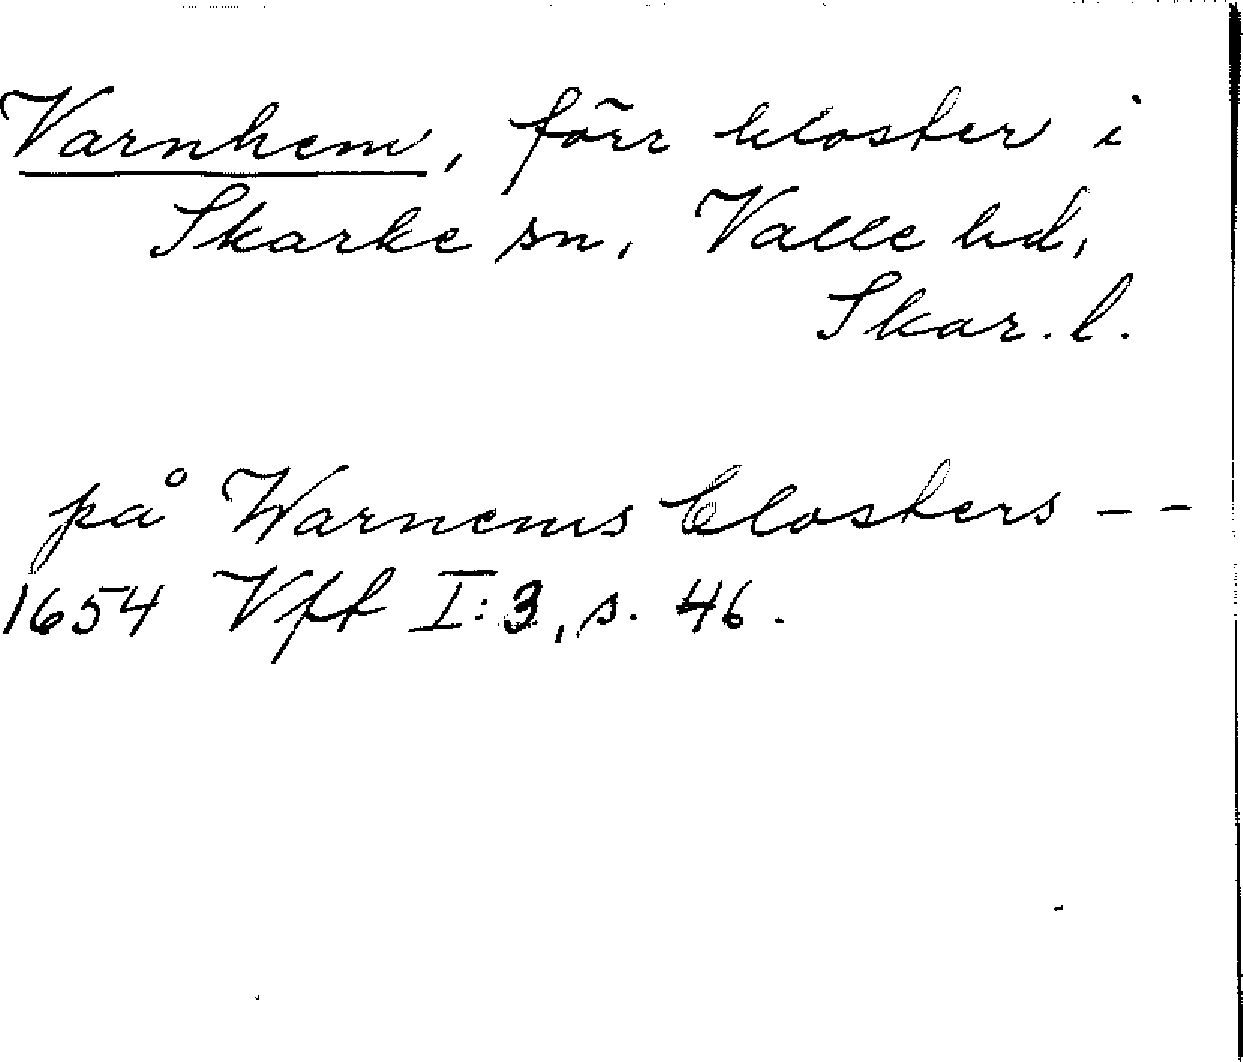 Varnhem, förr kloster i
Skarke sn, Valle hd,
Skar. l.
på Warnems Closters --
1654 Vft I:3, s. 46.